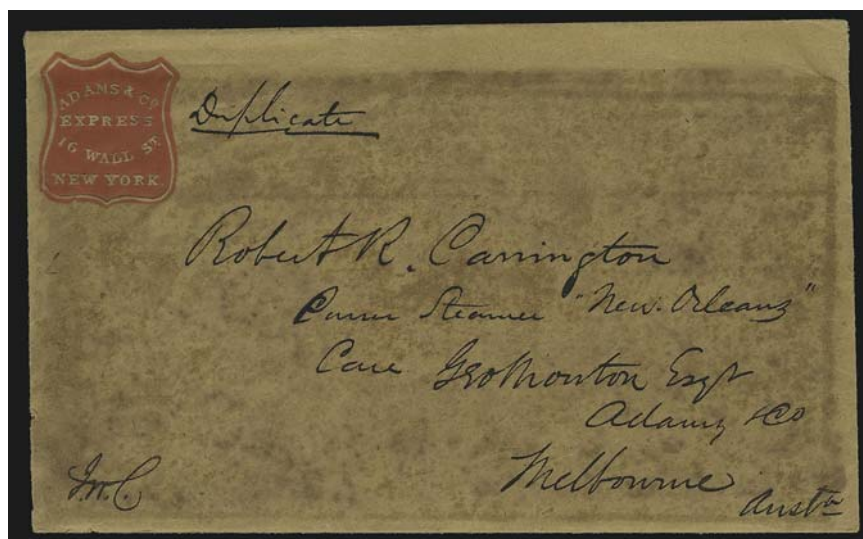 ADAMS & Co
EXPRESS
16 WALL ST
NEW YORK.
Duplicate
Robert R. Carrington
Purser Steamer "New. Orleans"
Care Geo Mowton Esqr
Adams & Co
Melbourne
Austa
J.W.C.